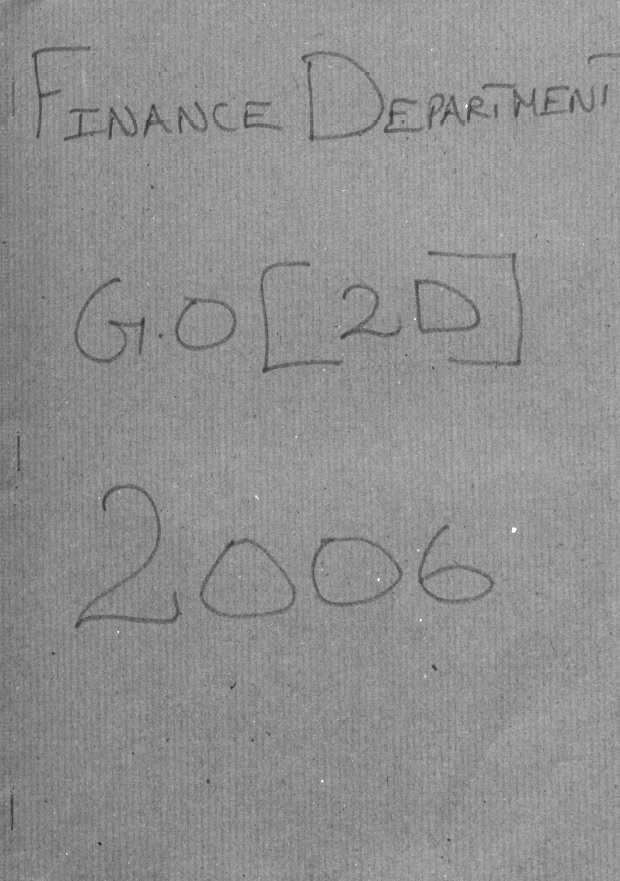 FINANCE DEPARTMENT
G.O [2D]
2006